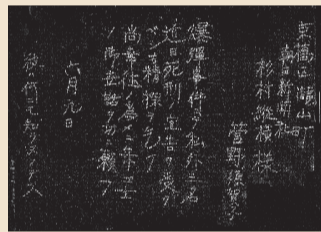 京橋区瀧山町
朝日新聞社
杉村縦横様
菅野須賀子
爆弾事件ニテ私外三名
近日死刑ノ宣告ヲ受ク
ベシ精探ヲ乞フ
尚幸徳ノ為メニ弁ゴ士
ノ御世話ヲ切ニ願フ
六月九日
彼ハ何ニモ知ラヌノデス